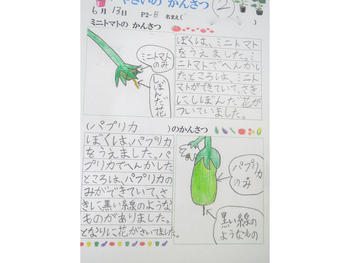 やさいの かんさつ
②
6月13日 P2-B 名まえ(
)
ミニトマトの かんさつ
ミニトマトのみ
しぼんだ花
ぼくは、ミニトマト
をうえました。ミニ
トマトでへんかし
たところは、ミニトマト
ができていて、さき
にしぼんだ花が
ついていました。
(パプリカ)のかんさつ
ぼくは、パプリカ
をうえました。パ
プリカでへんかした
ところは、パプリカの
みができていて、さ
きに黒い線のような
ものがありました。
となりに花がさいてました。
パプリカのみ
黒い線の
ようなもの